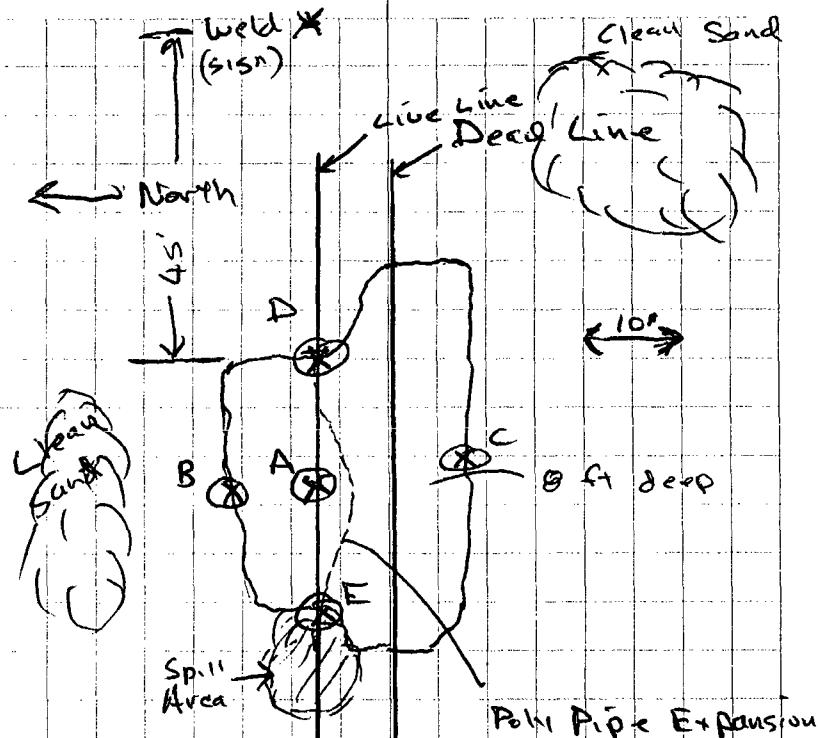 Weld
(sign)
Clean Sand
Live Line
Dead Line
North
45'
D
10'
Clean
Sand
B
A
C
8 ft deep
E
Spill
Area
Poly Pipe Expansion